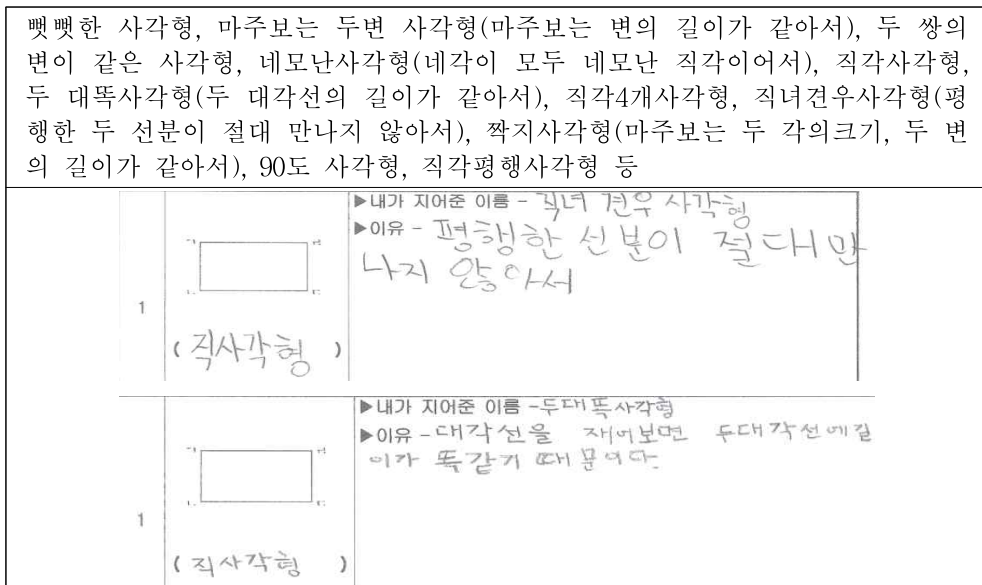 뻣뻣한 사각형, 마주보는 두변 사각형(마주보는 변의 길이가 같아서), 두 쌍의
변이 같은 사각형, 네모난사각형(네각이 모두 네모난 직각이어서), 직각사각형,
두 대똑사각형(두 대각선의 길이가 같아서), 직각4개사각형, 직녀견우사각형(평
행한 두 선분이 절대 만나지 않아서), 짝지사각형(마주보는 두 각의크기, 두 변
의 길이가 같아서), 90도 사각형, 직각평행사각형 등
▶내가 지어준 이름 - 직녀 견우 사각형
▶이유 - 평행한 선분이 절대 만
나지 않아서
1
(직사각형)
▶내가 지어준 이름 -두대똑사각형
▶이유 - 대각선을 재어보면 두대각선에길
이가 똑같기 때문이다.
1
(직사각형)